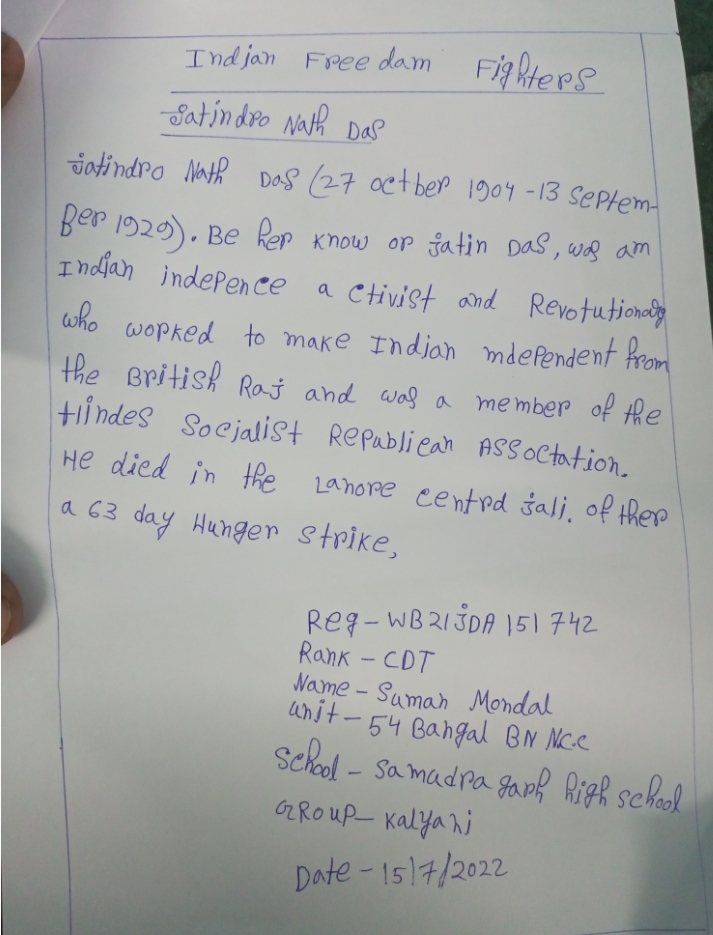 Indian Freedam Fighters
Jatindro Nath Das
Jatindro Nath Das (27 octber 1904 - 13 Septem-
Ber 1929). Be her know or jatin Das, was am
Indian indepence a ctivist and Revotutionary
who worked to make Indian mdependent from
the British Raj and was a member of the
Hindes Socialist Republican Assoctation.
He died in the Lanore centrd jali. of ther
a 63 day Hunger strike,
Reg - WB21JDA151742
Rank - CDT
Name - Suman Mondal
unit - 54 Bangal BN NCC
School - Samudra garh high school
GRoup - Kalyani
Date - 15/7/2022